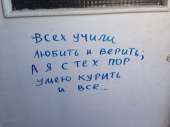 Всех учили
любить и верить;
А я с тех пор
умею курить
и все...